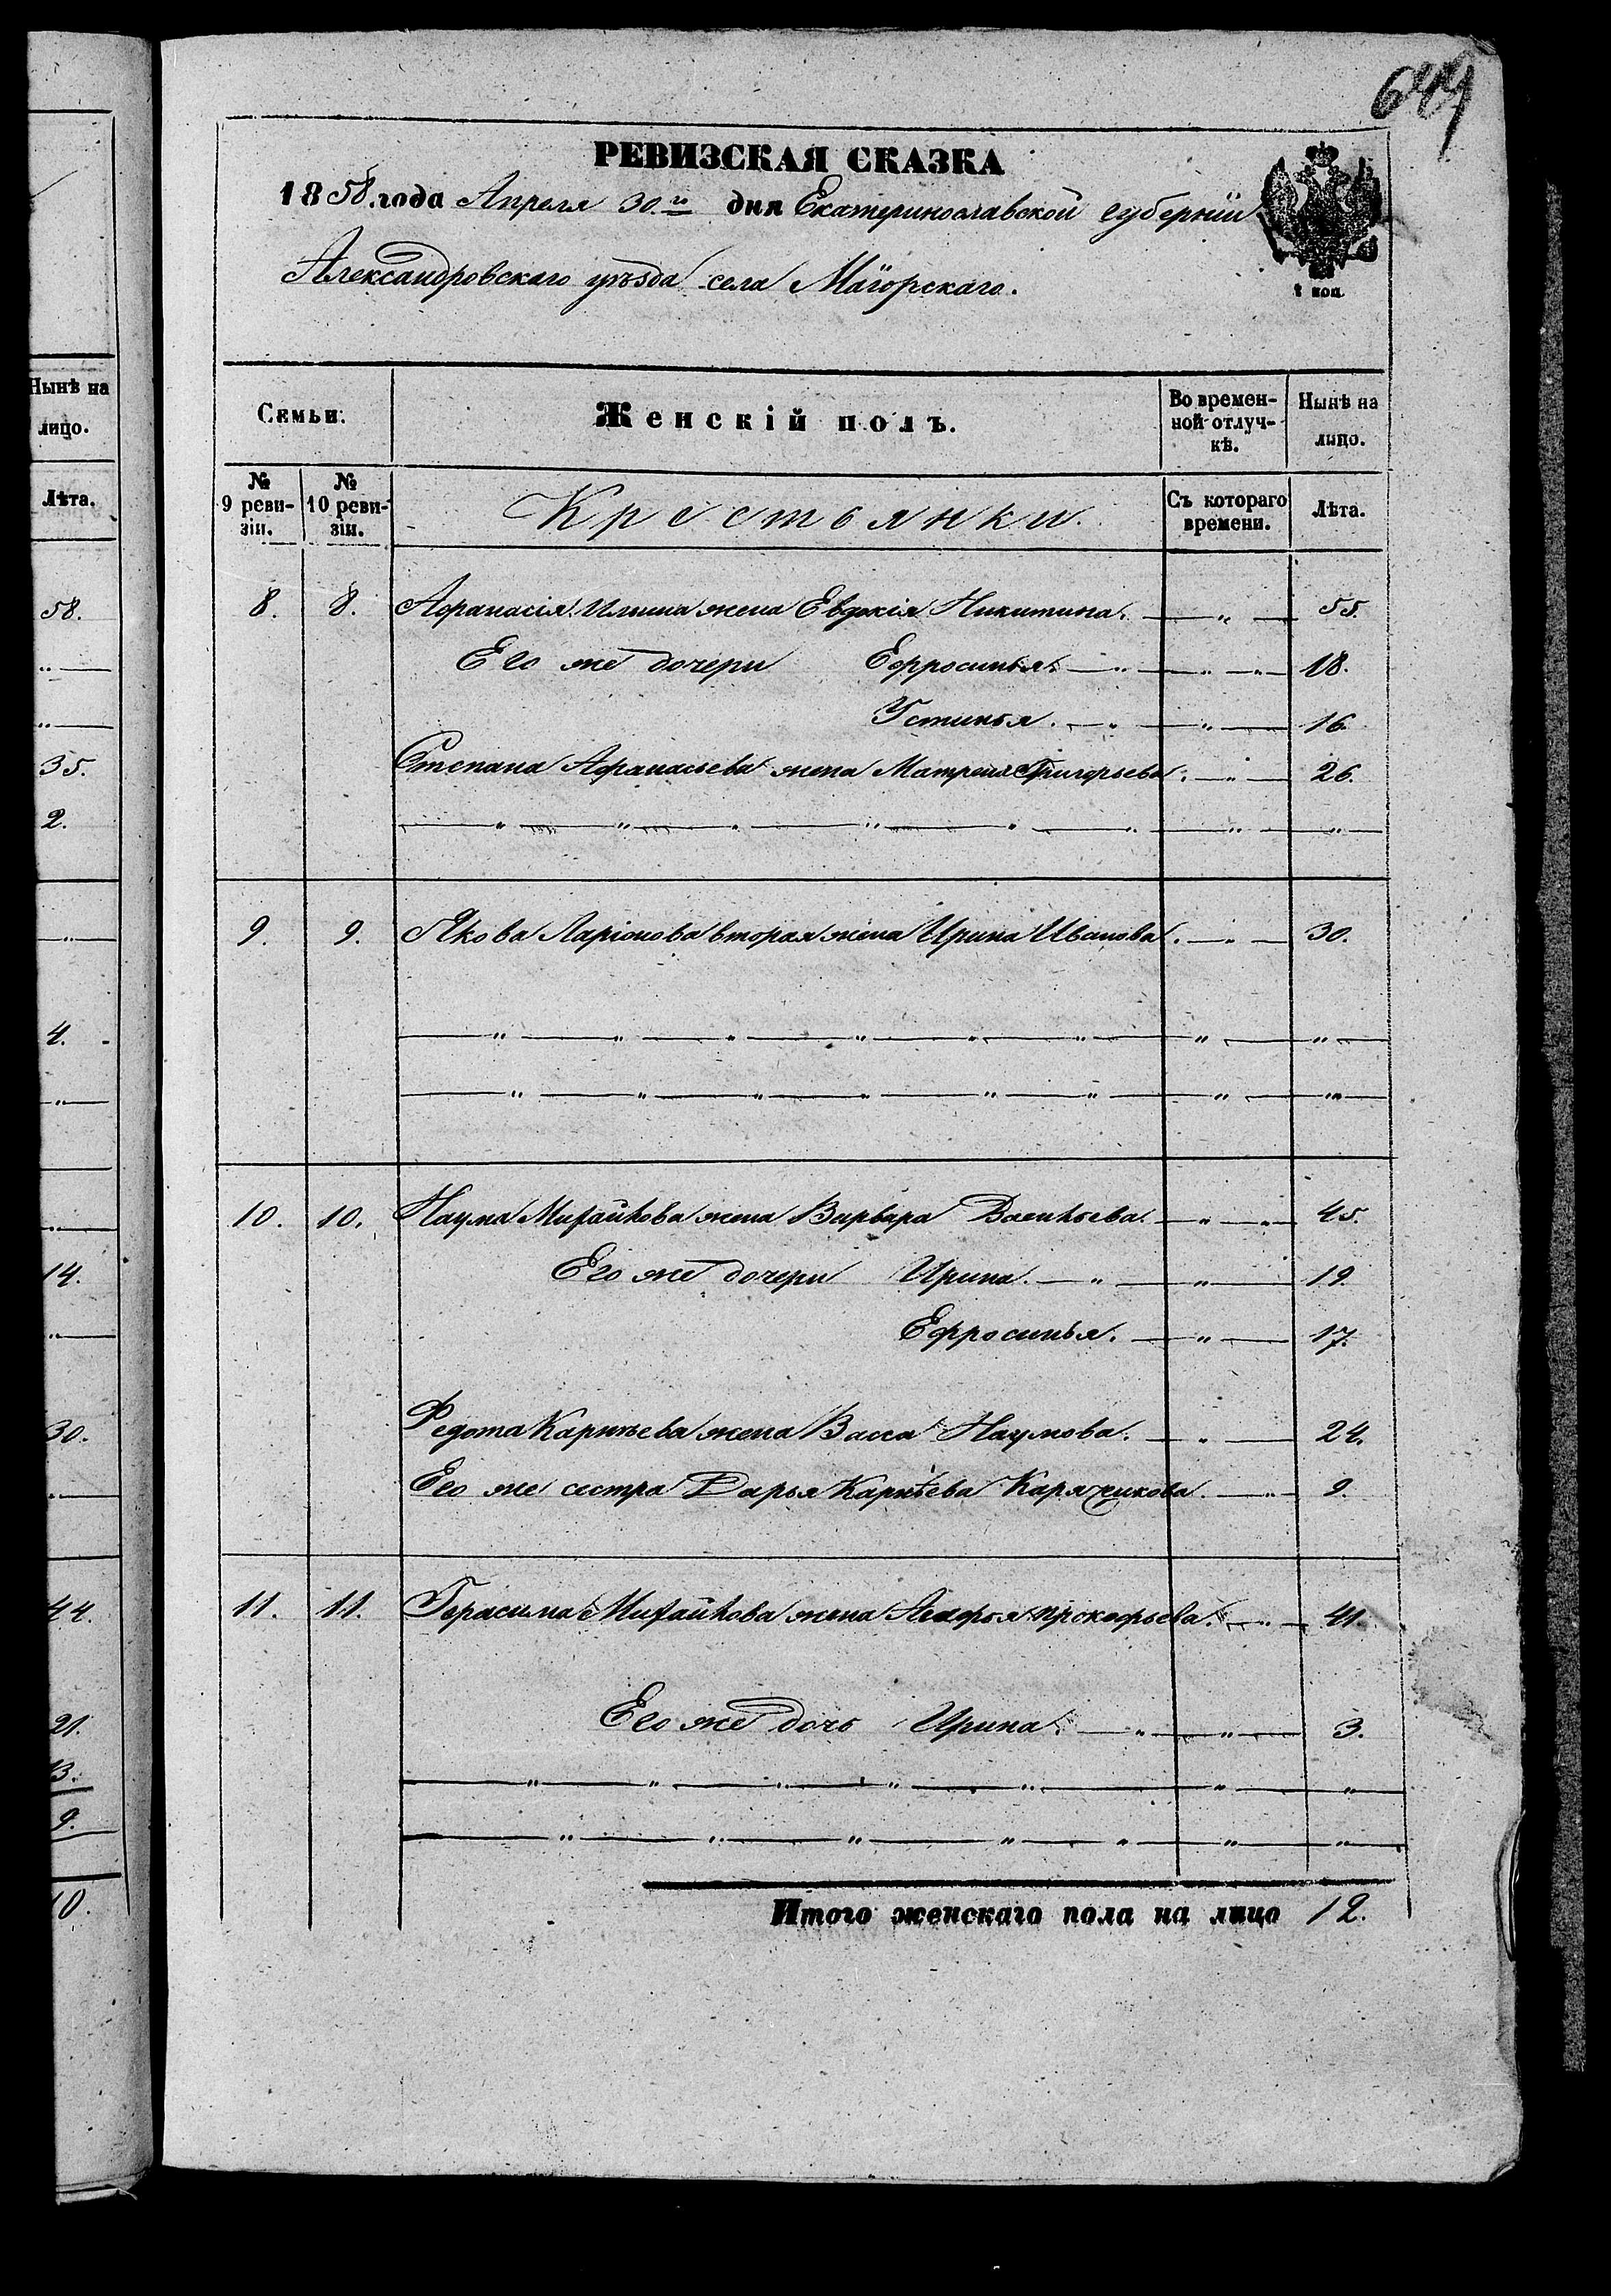 644
РЕВИЗСКАЯ СКАЗКА
1858. года Апреля 30.го дня Екатеринославской губерніи
Александровскаго уѣзда села Маіорскаго.
1 коп.
Нынѣ на лицо.
Лѣта.
58.
35.
2.
4.
14.
30.
44.
21.
13.
9.
10.
Семьи: Женскій полъ. Во времен- Нынѣ на
ной отлуч- лицо.
кѣ.
№ № Крестьянки. Съ котораго Лѣта.
9 реви- 10 реви- времени.
зіи. зіи.
8. 8. Афанасія Ильина жена Евдокія Никитина. — „ — 55.
Его же дочери Ефросинья. — „ — „ — 18.
Устинья. — „ — „ — 16.
Степана Афанасьева жена Матрена Григорьева. — „ — 26.
9. 9. Якова Ларіонова вторая жена Ирина Иванова. — „ — 30.
10. 10. Наума Михайлова жена Варвара Васильева. — „ — 45.
Его же дочери Ирина. — „ — „ — 19.
Ефросинья. — „ — 17.
Федота Карнѣева жена Васса Наумова. — „ — 24.
Его же сестра Дарья Карнѣева Карячикова. — „ — 9.
11. 11. Герасима Михайлова жена Агафья Прокофьева. — „ — 41.
Его же дочь Ирина. — „ — „ — 3.
Итого женскаго пола на лицо 12.